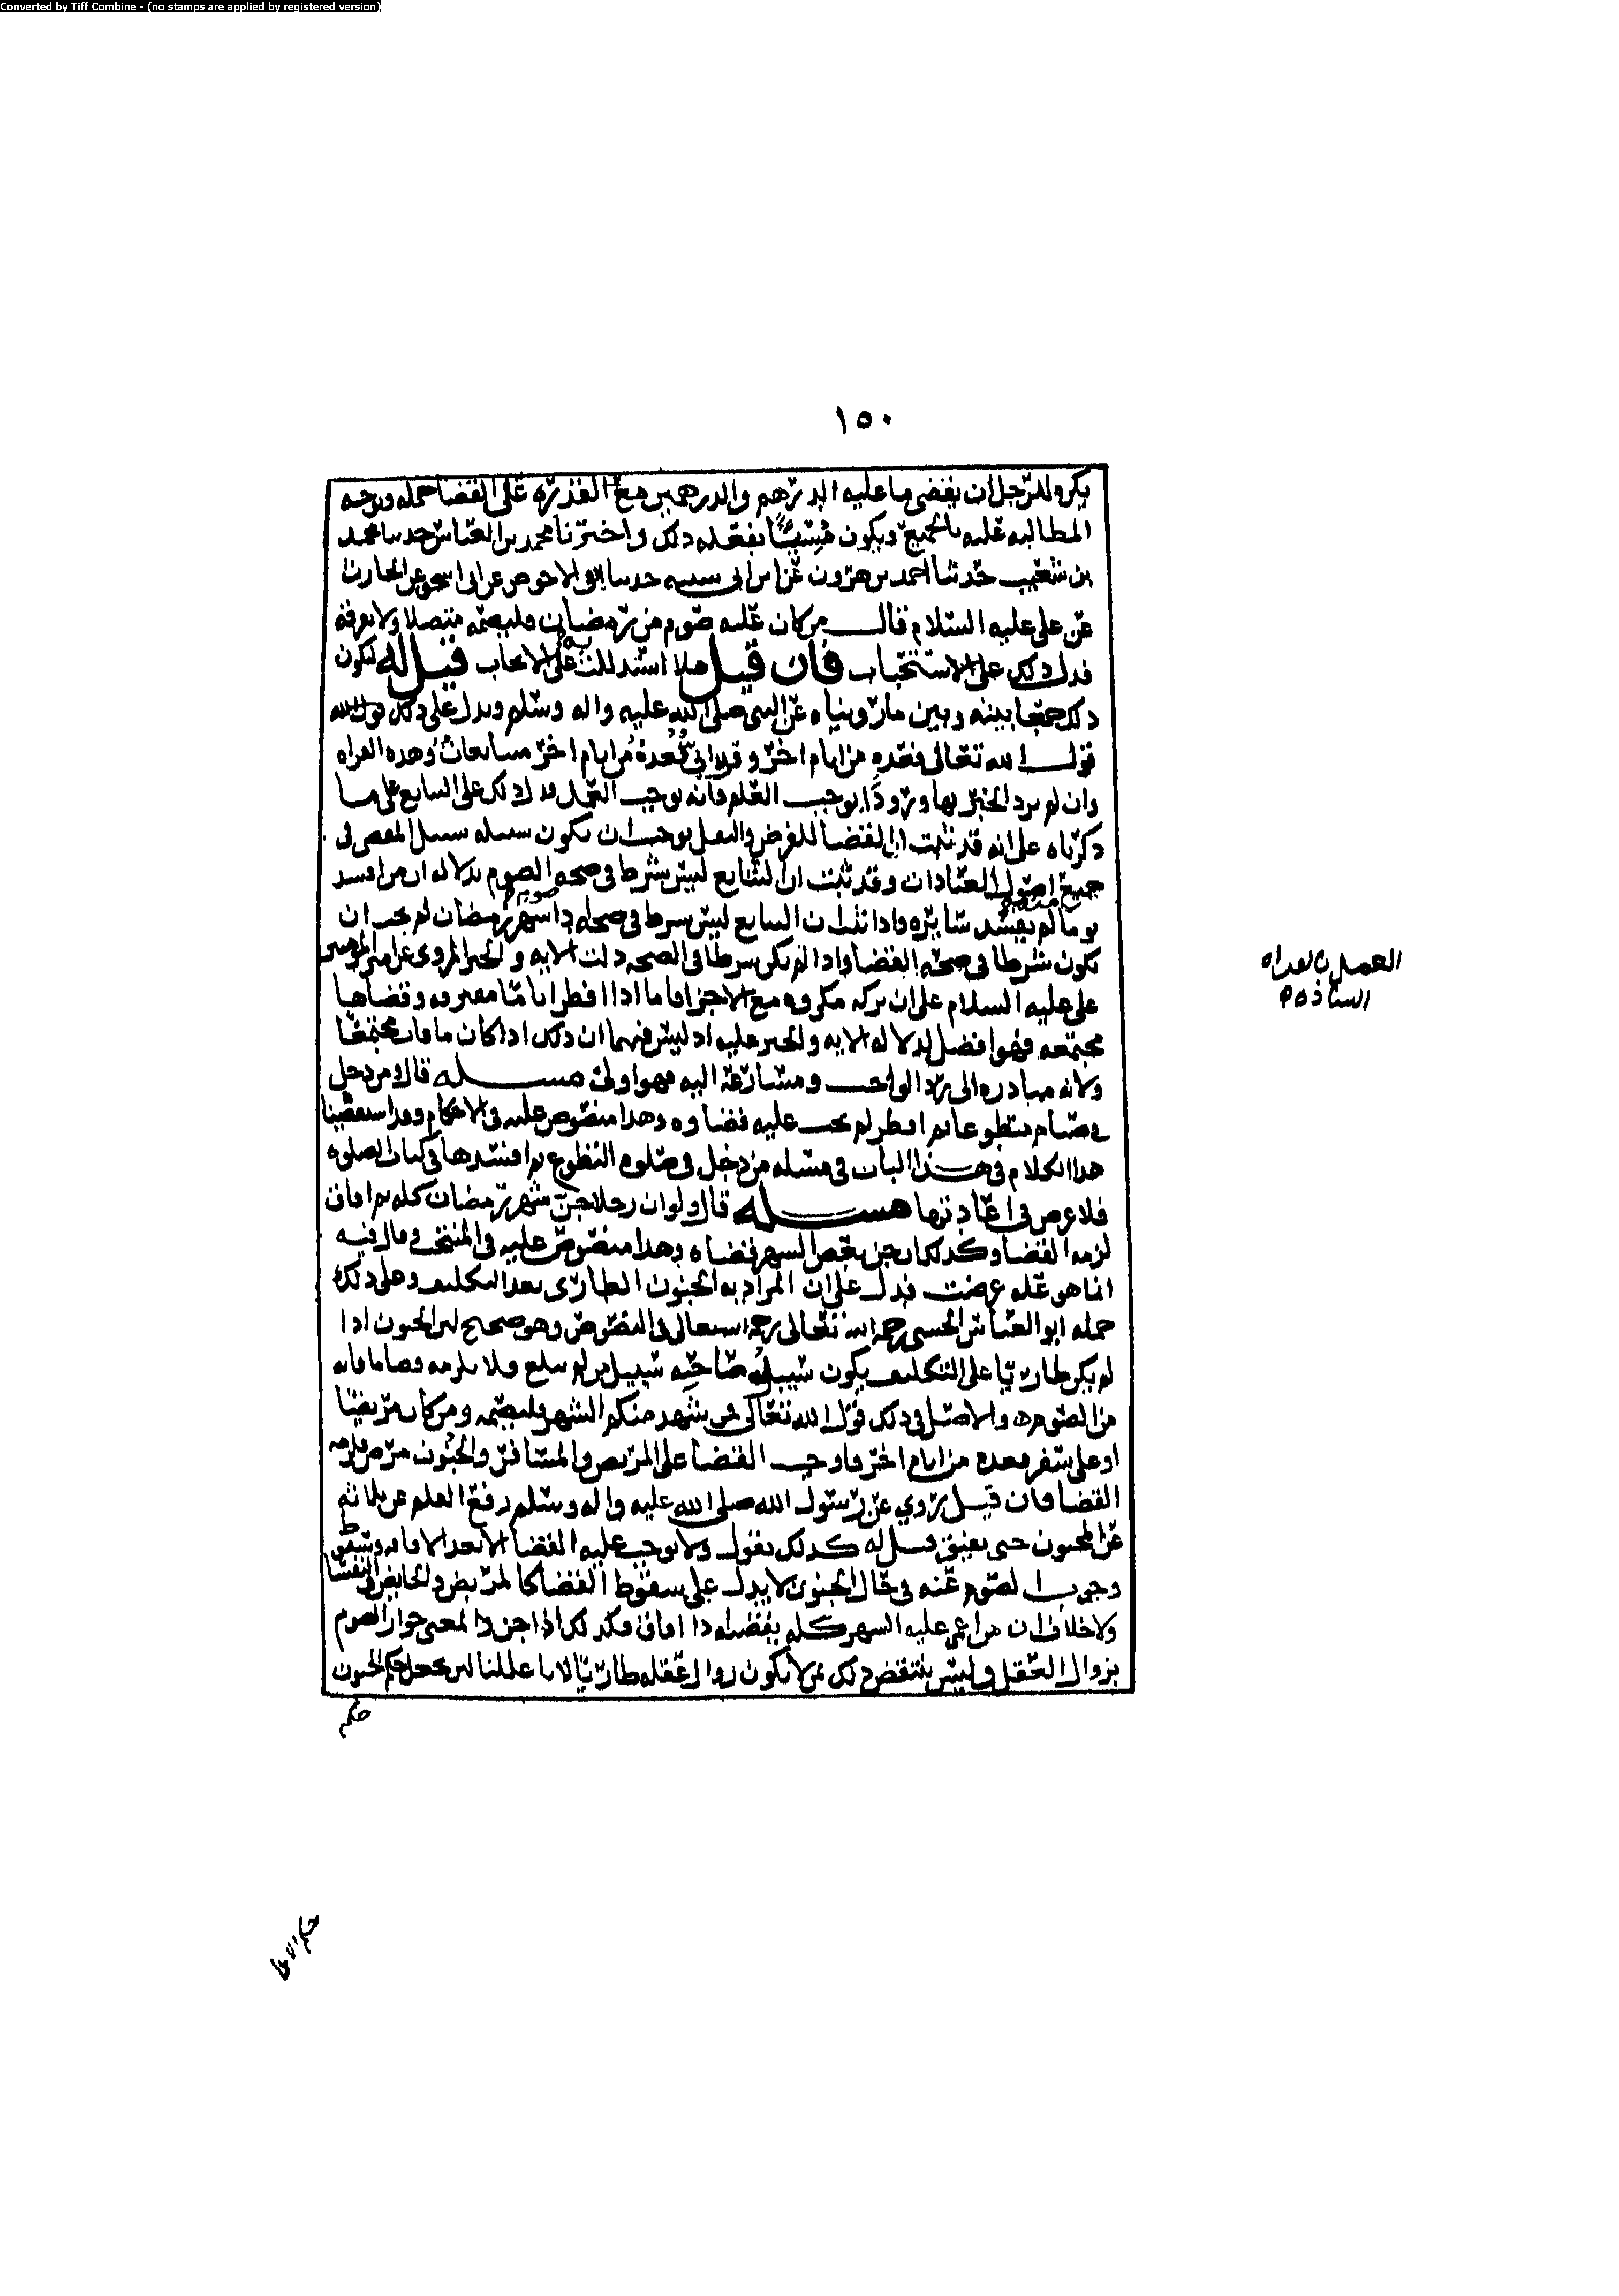 Converted by Tiff Combine - (no stamps are applied by registered version)
١٥٠
يكره للرجل ان يقضي ما عليه الدرهم والدرهمين مع القدرة على القضا جمله وتوجه
المطالبه عليه بالجميع ويكون مسيئا بفعله ذلك واخبرنا محمد بن العباس حدثنا محمد
بن شعيب حدثنا احمد بن هرون عن ابن ابي شيبه حدثنا ابو الاحوص عن ابي اسحق عن الحارث
عن علي عليه السلام قال من كان عليه صوم من رمضان فليصمه متصلا ولا يفرقه
فدل ذلك على الاستحباب فان قيل هلا استدللت به على الايجاب قيل له ليكون
ذلك جمعا بينه وبين ما رويناه عن النبي صلى الله عليه واله وسلم ويدل على ذلك قول الله
قول الله تعالى فعدة من ايام اخر وقرا ابي فعدة من ايام اخر متتابعات وهذه القراه
وان لم يرد الخبر بها ورودا يوجب العلم فانه يوجب العمل فدل ذلك على التتابع على ما
ذكرناه على انه قد ثبت ان القضا للفرض والنفل يوجب ان يكون سبيله سبيل المقضي في
جميع اصول العبادات وقد ثبت ان التتابع ليس شرط في صحه الصوم بدلاله ان من افسد
يوما لم يفسد سايره واذا ثبت ان التتابع ليس شرط في صحه شهر رمضان لم يجب ان
يكون شرطا في صحه القضا واذا لم يكن شرطا في الصحه دلت الايه والخبر المروي عن امير المومنين
علي عليه السلام على ان تركه مكروه مع الاجزا فاما اذا افطر اياما متفرقه وقضاها
مجتمعه فهوا افضل لدلاله الايه والخبر عليه اذ ليس فيهما ان ذلك اذا كان ما فات مجتمعا
ولانه مبادره الى رد الواجب ومسارعة اليه فهوا اولى مسله قال ومن دخل
في صيام متطوعا ثم افطر لم يجب عليه قضاوه وهذا منصوص عليه في الاحكام وقد استقصينا
هذا الكلام في هذا الباب في مسله من دخل في صلوه التطوع ثم افسدها في كتاب الصلوه
فلا غرض في اعادتها مسله قال ولو ان رجلا جن شهر رمضان كله ثم افاق
لزمه القضا وكذلك ان جن بعض الشهر قضاه وهذا منصوص عليه في المنتخب وقال فيه
انما هو عله عرضت فدل على ان المراد به الجنون الطاري بعد التكليف وعلى ذلك
حمله ابو العباس الحسني رحمه الله تعالى في النصوص وهو صحيح لان الجنون اذا
لم يكن طاريا على التكليف يكون سبيل صاحبه سبيل من لم يبلغ فلا يلزمه قضا ما فاته
من الصوم والاصل في ذلك قول الله تعالى فمن شهد منكم الشهر فليصمه ومن كان مريضا
او على سفر فعدة من ايام اخر فاوجب القضا على المريض والمسافر والجنون مرض فلزمه
القضا فان قيل روي عن رسول الله صلى الله عليه واله وسلم رفع القلم عن ثلاثه
عن المجنون حتى يفيق قيل له كذلك نقول ولا نوجب عليه القضا الا بعد الافاقه وسقوط
وجوب الصوم عنه في حال الجنون لا يدل على سقوط القضا كالمريض والحايض والنفسا
ولا خلاف ان من اغمي عليه الشهر كله يقضيه اذا افاق فكذلك اذا جن والمعنى جواز الصوم
بزوال العقل وليس ينتقض ذلك بمن لا يكون زوال عقله طاريا لانا عللنا لان نجعل حكم الجنون
حكم
العمل بالقراه
الشاذه
حكم الاغما